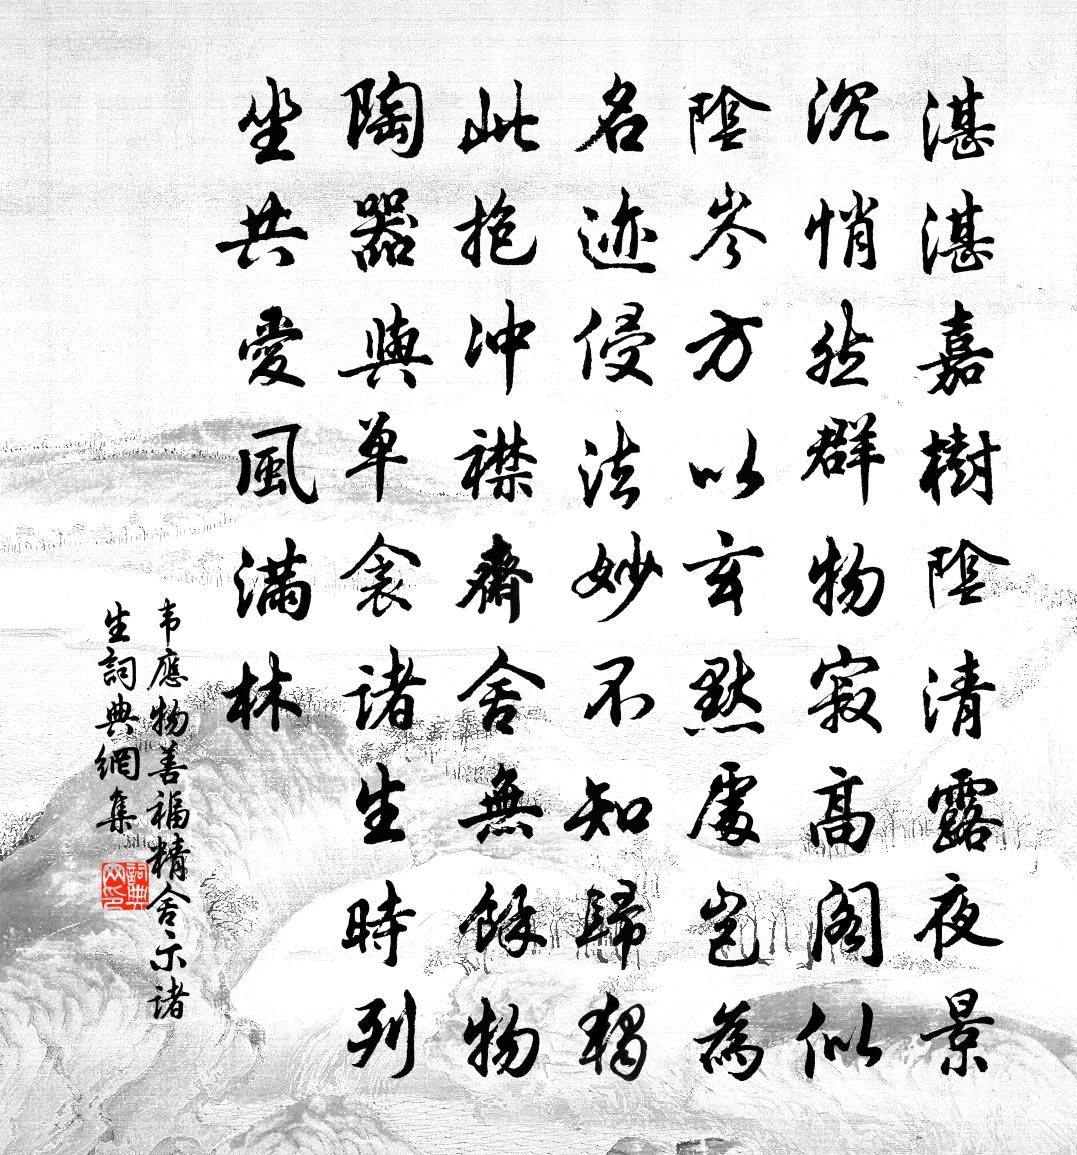 湛湛嘉樹陰清露夜景
沉悄然群物寂高阁似
陰岑方以玄默處岂為
名迹侵法妙不知歸獨
此抱冲襟齋舍無餘物
陶器與单衾诸生時列
坐共愛風满林
韦應物善福精舍示诸
生詞典網集
詞典网印